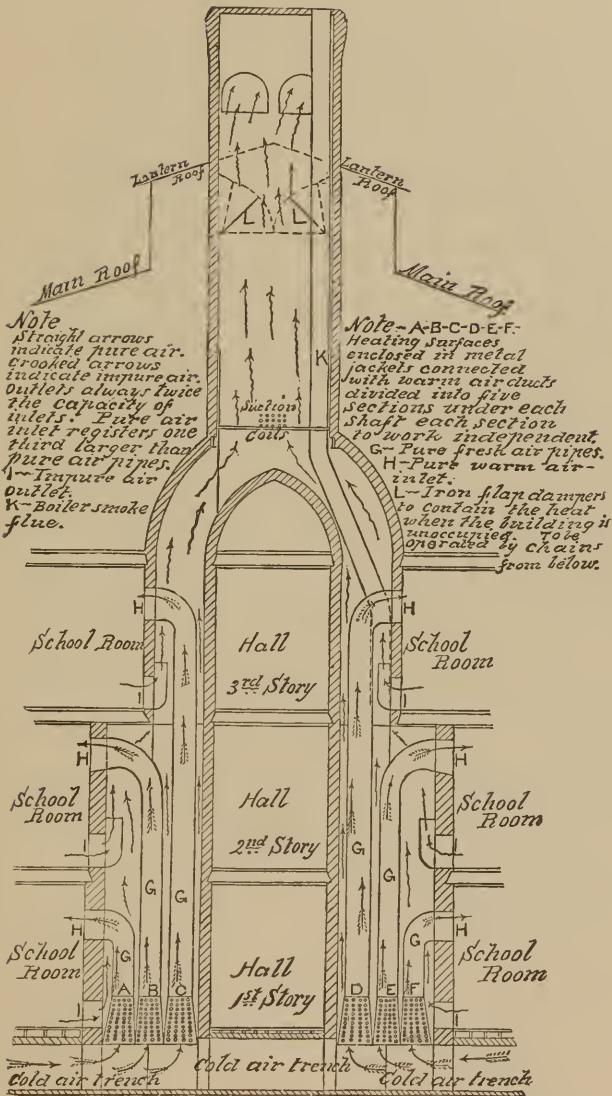 Lantern
Roof
Lantern
Roof
L
L
Main Roof
Main Roof
Note
Straight arrows
indicate pure air.
Crooked arrows
indicate impure air.
Outlets always twice
the capacity of
inlets. Pure air
inlet registers one
third larger than
pure air pipes.
I-Impure air
outlet.
K-Boiler smoke
flue.
K
Suction
Coils
Note-A-B-C-D-E-F-
Heating surfaces
enclosed in metal
jackets connected
with warm air ducts
divided into five
sections under each
shaft each section
to work independent.
G-Pure fresh air pipes.
H-Pure warm air-
inlet.
L-Iron flap dampers
to contain the heat
when the building is
unoccupied. To be
operated by chains
from below.
H
H
School Room
Hall
3rd Story
School
Room
I
I
H
H
School
Room
Hall
2nd Story
School
Room
I
I
G
G
G
G
H
H
School
Room
G
Hall
1st Story
G
School
Room
I
I
A
B
C
D
E
F
Cold air trench
Cold air trench
Cold air trench